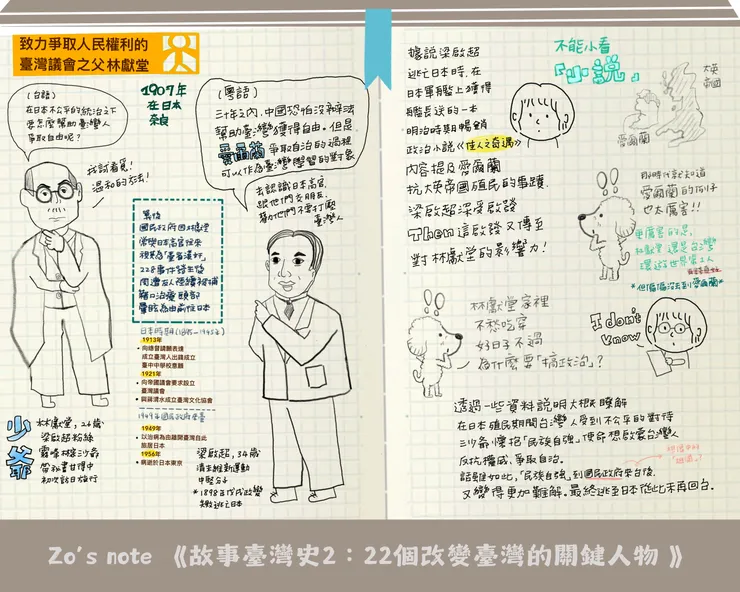 致力爭取人民權利的
臺灣議會之父林獻堂
(台語)
在日本不公平的統治之下
要怎麼幫助臺灣人
爭取自由呢?
1907年
在日本
奈良
(粵語)
三十年之內,中國恐怕沒辦法
幫助臺灣獲得自由。但是
愛爾蘭爭取自治的過程
可以作為臺灣學習的對象
我試看覓!
溫和的方法!
去認識日本高官
跟他們交朋友,
勸他們不要打壓
臺灣人
國民政府因林獻堂
常與日本高官往來
視其為「臺省漢奸」
228事件發生後
周遭友人陸續被捕
藉口治療頭部
暈眩為由前往日本
日本時期(1895-1945年)
1913年
• 向總督請願表達
成立臺灣人出錢成立
臺中中學校意願
1921年
• 向帝國議會要求設立
臺灣議會
• 與蔣渭水成立臺灣文化協會
1949年國民政府來臺
1949年
• 以治病為由離開臺灣自此
旅居日本
1956年
• 病逝於日本東京
少爺
林獻堂,26歲
梁啟超粉絲
霧峰林家少爺
初次訪日旅行
梁啟超,34歲
清末維新運動
中堅分子
*1898年戊戌政變
失敗逃亡日本
據說梁啟超
逃亡日本時,在
日本軍艦上獲得
艦長送的一本
明治時期暢銷
政治小說《佳人之奇遇》
內容提及愛爾蘭
抗大英帝國殖民的事蹟,
梁啟超深受啟發
Then 這啟發又傳至
對林獻堂的影響力!
不能小看
「小說」
大英
帝國
愛爾蘭
那時代就知道
愛爾蘭的例子
也太厲害!!
更厲害的是,
林獻堂還是台灣
環遊世界第一人
*但偏偏沒去到愛爾蘭*
林獻堂家裡
不愁吃穿
好日子不過
為什麼要「搞政治」?
I don't
know
透過一些資料說明大概瞭解
在日本殖民期間台灣人受到不公平的對待
三少爺懷抱「民族自強」使命想啟蒙台灣人
反抗權威、爭取自治。
話雖如此,「民族自強」到國民政府來台後,
又變得更加難解。最終逃至日本從此未再回台。
Zo's note 《故事臺灣史2:22個改變臺灣的關鍵人物》